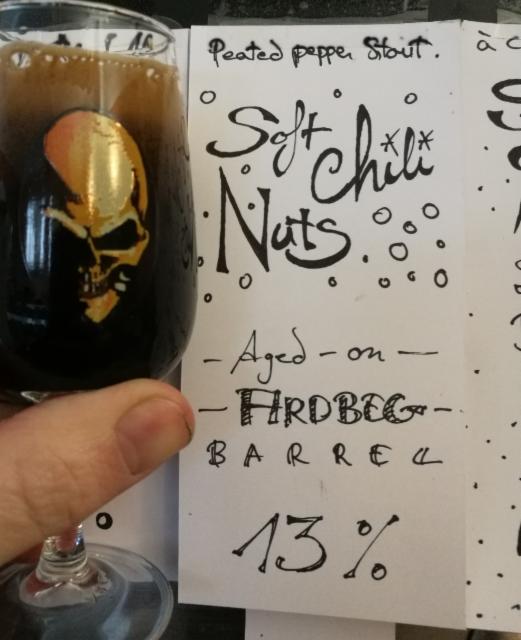 Peated pepper Stout.
Soft
Chili
Nuts
- Aged - on -
- ARDBEG -
BARREL
13%
à c